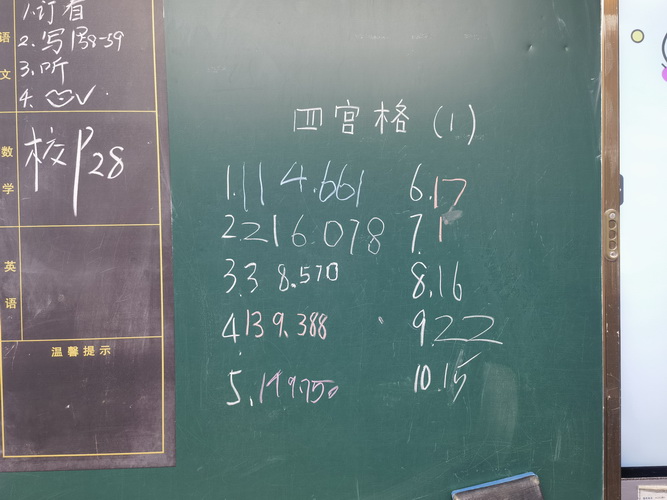 语文
1.订看
2.写P58-59
3.听
数学
校P28
英语
温馨提示
四宫格(1)
1.114.661
2.216.078
3.38.570
4.139.388
5.149.750
6.17
7.1
8.16
9.22
10.15